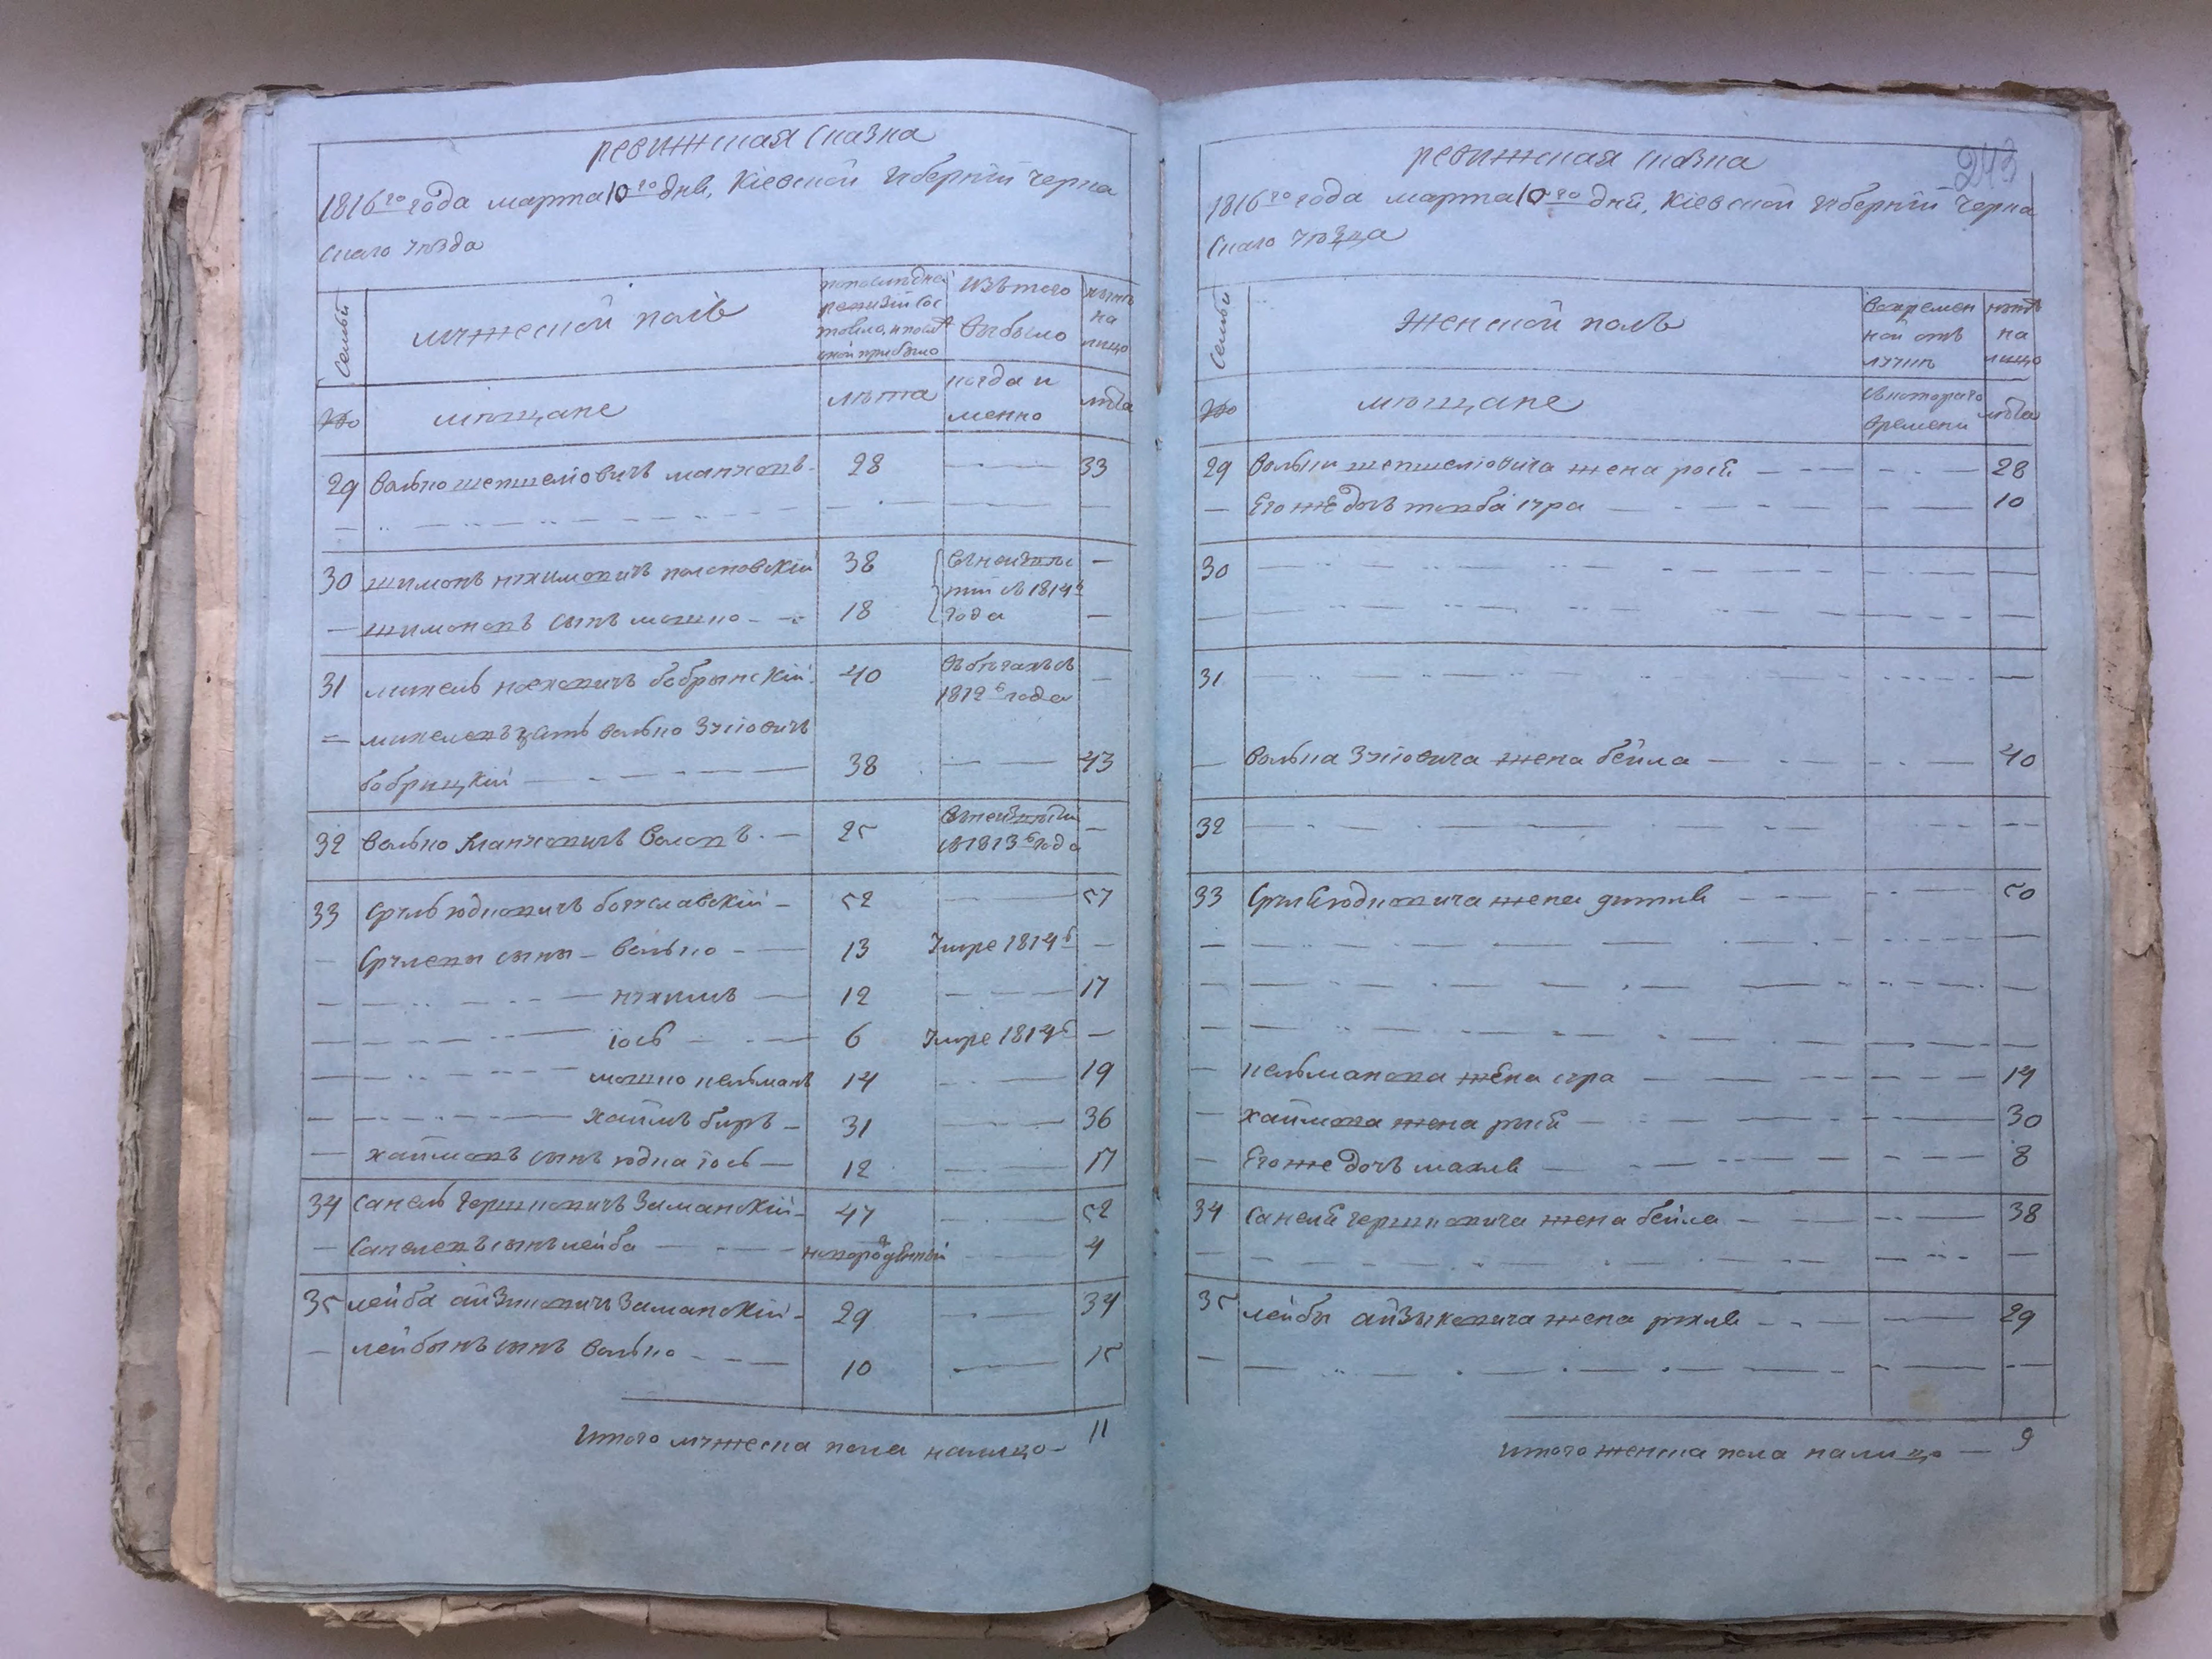 ревижская сказка
1816го года марта 10го дня, Кіевской губерніи черка
скаго уѣзда
Семьи
мужеской полъ
изъ того
выбыло
нынѣ
на
лицо
№
мѣщане
лѣта
когда и
менно
лѣта
29 волько шепшеліовичъ манжовъ 28 33
30 шимонъ нухимовичъ полоновскій 38
шимоновъ сынъ мошко 18
года
31 михель ноехович бобрынскій 40
въ бѣгахъ съ
1812г года
михелевъ зять волько Зуловичъ
бобрицкій 38 43
32 волько 25
съ 1813г года
33 Сруль юдковичъ богуславскій 52 57
Срулевы сыны волько 13 Умре 1814г
нухимъ 12 17
іось 6 Умре 1814г
мошко кельманъ 14 19
хаимъ биръ 31 36
хаимовъ сынъ юдка іось 12 17
34 Санель гершковичъ Заманскій 47 52
Санелевъ сынъ лейба новорожденный 4
35 лейба айзиковичъ Заманскій 29 34
лейбынъ сынъ волько 10 15
Итого мужеска пола налицо 11
243
ревижская сказка
1816го года марта 10го дня, Кіевской губерніи черка
скаго уѣзда
Семьи
Женской полъ
во времен
ной отъ
лучкѣ
нынѣ
на
лицо
№
мѣщане
съ котораго
времени
лѣта
29 волька шепшеліовича жена рося 28
Его же дочь 10
30
31
волька Зуловича жена бейла 40
32
33 Сруля юдковича жена 50
кельманова жена сура 19
хаимова жена рыся 30
Его же дочь махля 8
34 Санеля гершковича жена бейла 38
35 лейбы айзыковича жена рухля 29
итого женска пола налицо 9